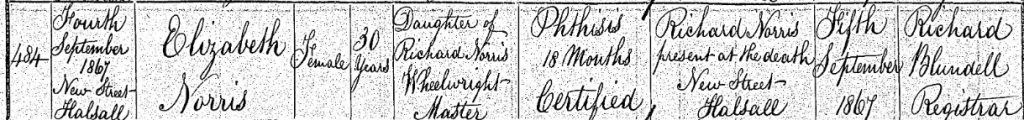 484
Fourth
September
1867
New Street
Halsall
Elizabeth
Norris
Female
30
Years
Daughter of
Richard Norris
Wheelwright
Master
Phthisis
18 Months
Certified
Richard Norris
present at the death
New Street
Halsall
Fifth
September
1867
Richard
Blundell
Registrar